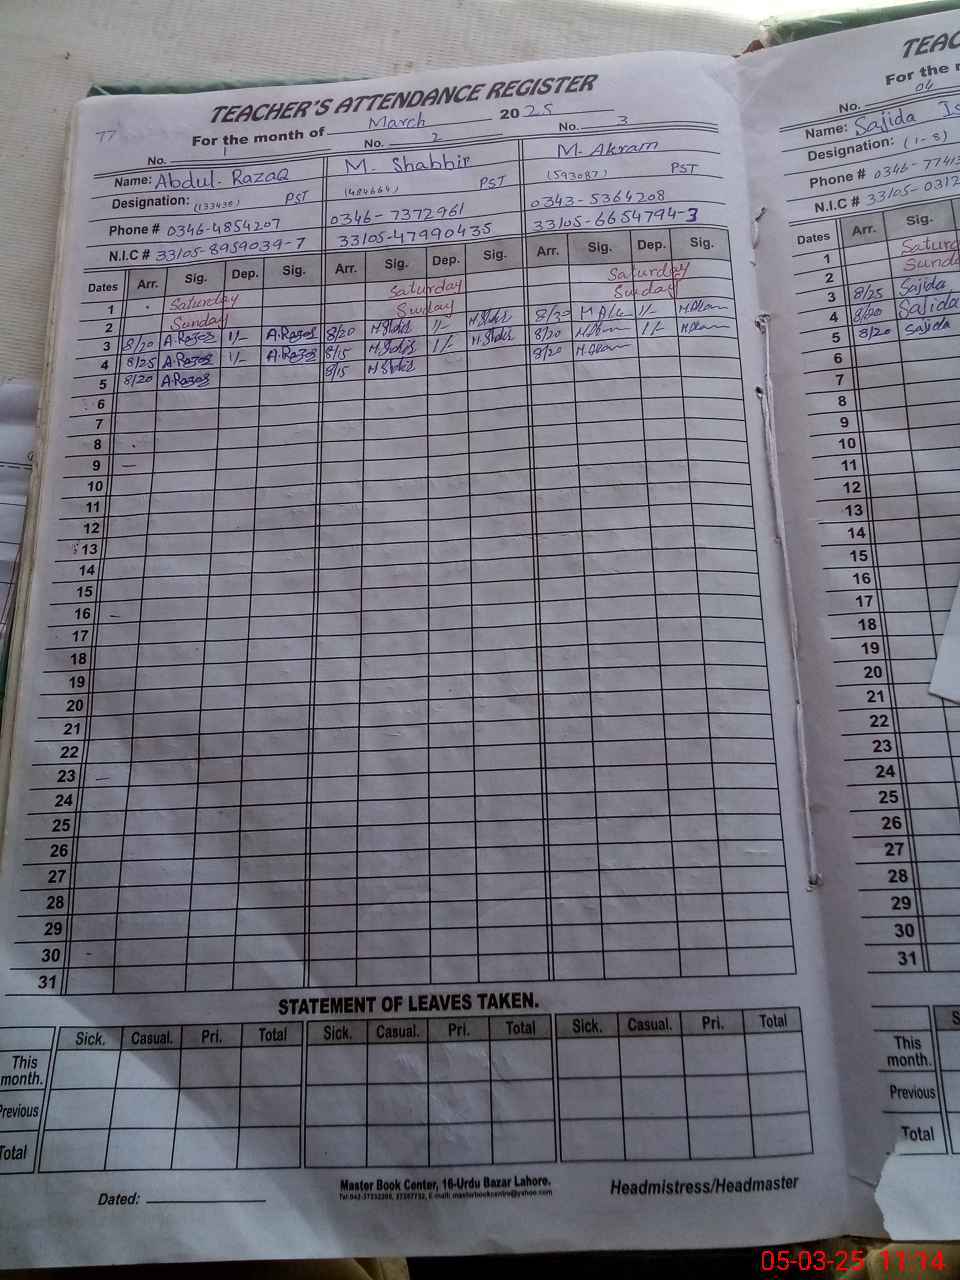 TEACHER'S ATTENDANCE REGISTER
77
For the month of March 2025
No. 1 No. 2 No. 3
Name: Abdul. Razaq M. Shabbir M. Akram
Designation: (133438) PST (484664) PST (593087) PST
Phone # 0346-4854207 0346-7372961 0343-5364208
N.I.C # 33105-8959039-7 33105-47990435 33105-6654794-3
Dates Arr. Sig. Dep. Sig. Arr. Sig. Dep. Sig. Arr. Sig. Dep. Sig.
1 Saturday Saturday Saturday
2 Sunday Sunday Sunday
3 8/20 A.Razaq 1/- A.Razaq 8/20 1/- 8/20 1/-
4 8/25 A.Razaq 1/- A.Razaq 8/15 1/- 8/20 1/-
5 8/20 A.Razaq 8/15 8/20
6
7
8
9
10
11
12
13
14
15
16
17
18
19
20
21
22
23
24
25
26
27
28
29
30
31
STATEMENT OF LEAVES TAKEN.
Sick. Casual. Pri. Total Sick. Casual. Pri. Total Sick. Casual. Pri. Total
This month.
Previous
Total
Master Book Center, 16-Urdu Bazar Lahore.
Dated:
Headmistress/Headmaster
TEAC
For the
No. 04
Name: Sajida Is
Designation: (1-8)
Phone # 0346-7741
N.I.C # 33105-0312
Dates Arr. Sig.
1 Saturd
2 Sunda
3 8/25 Sajida
4 8/20 Sajida
5 8/20 Sajida
6
7
8
9
10
11
12
13
14
15
16
17
18
19
20
21
22
23
24
25
26
27
28
29
30
31
S
This month.
Previous
Total
05-03-25 11:14